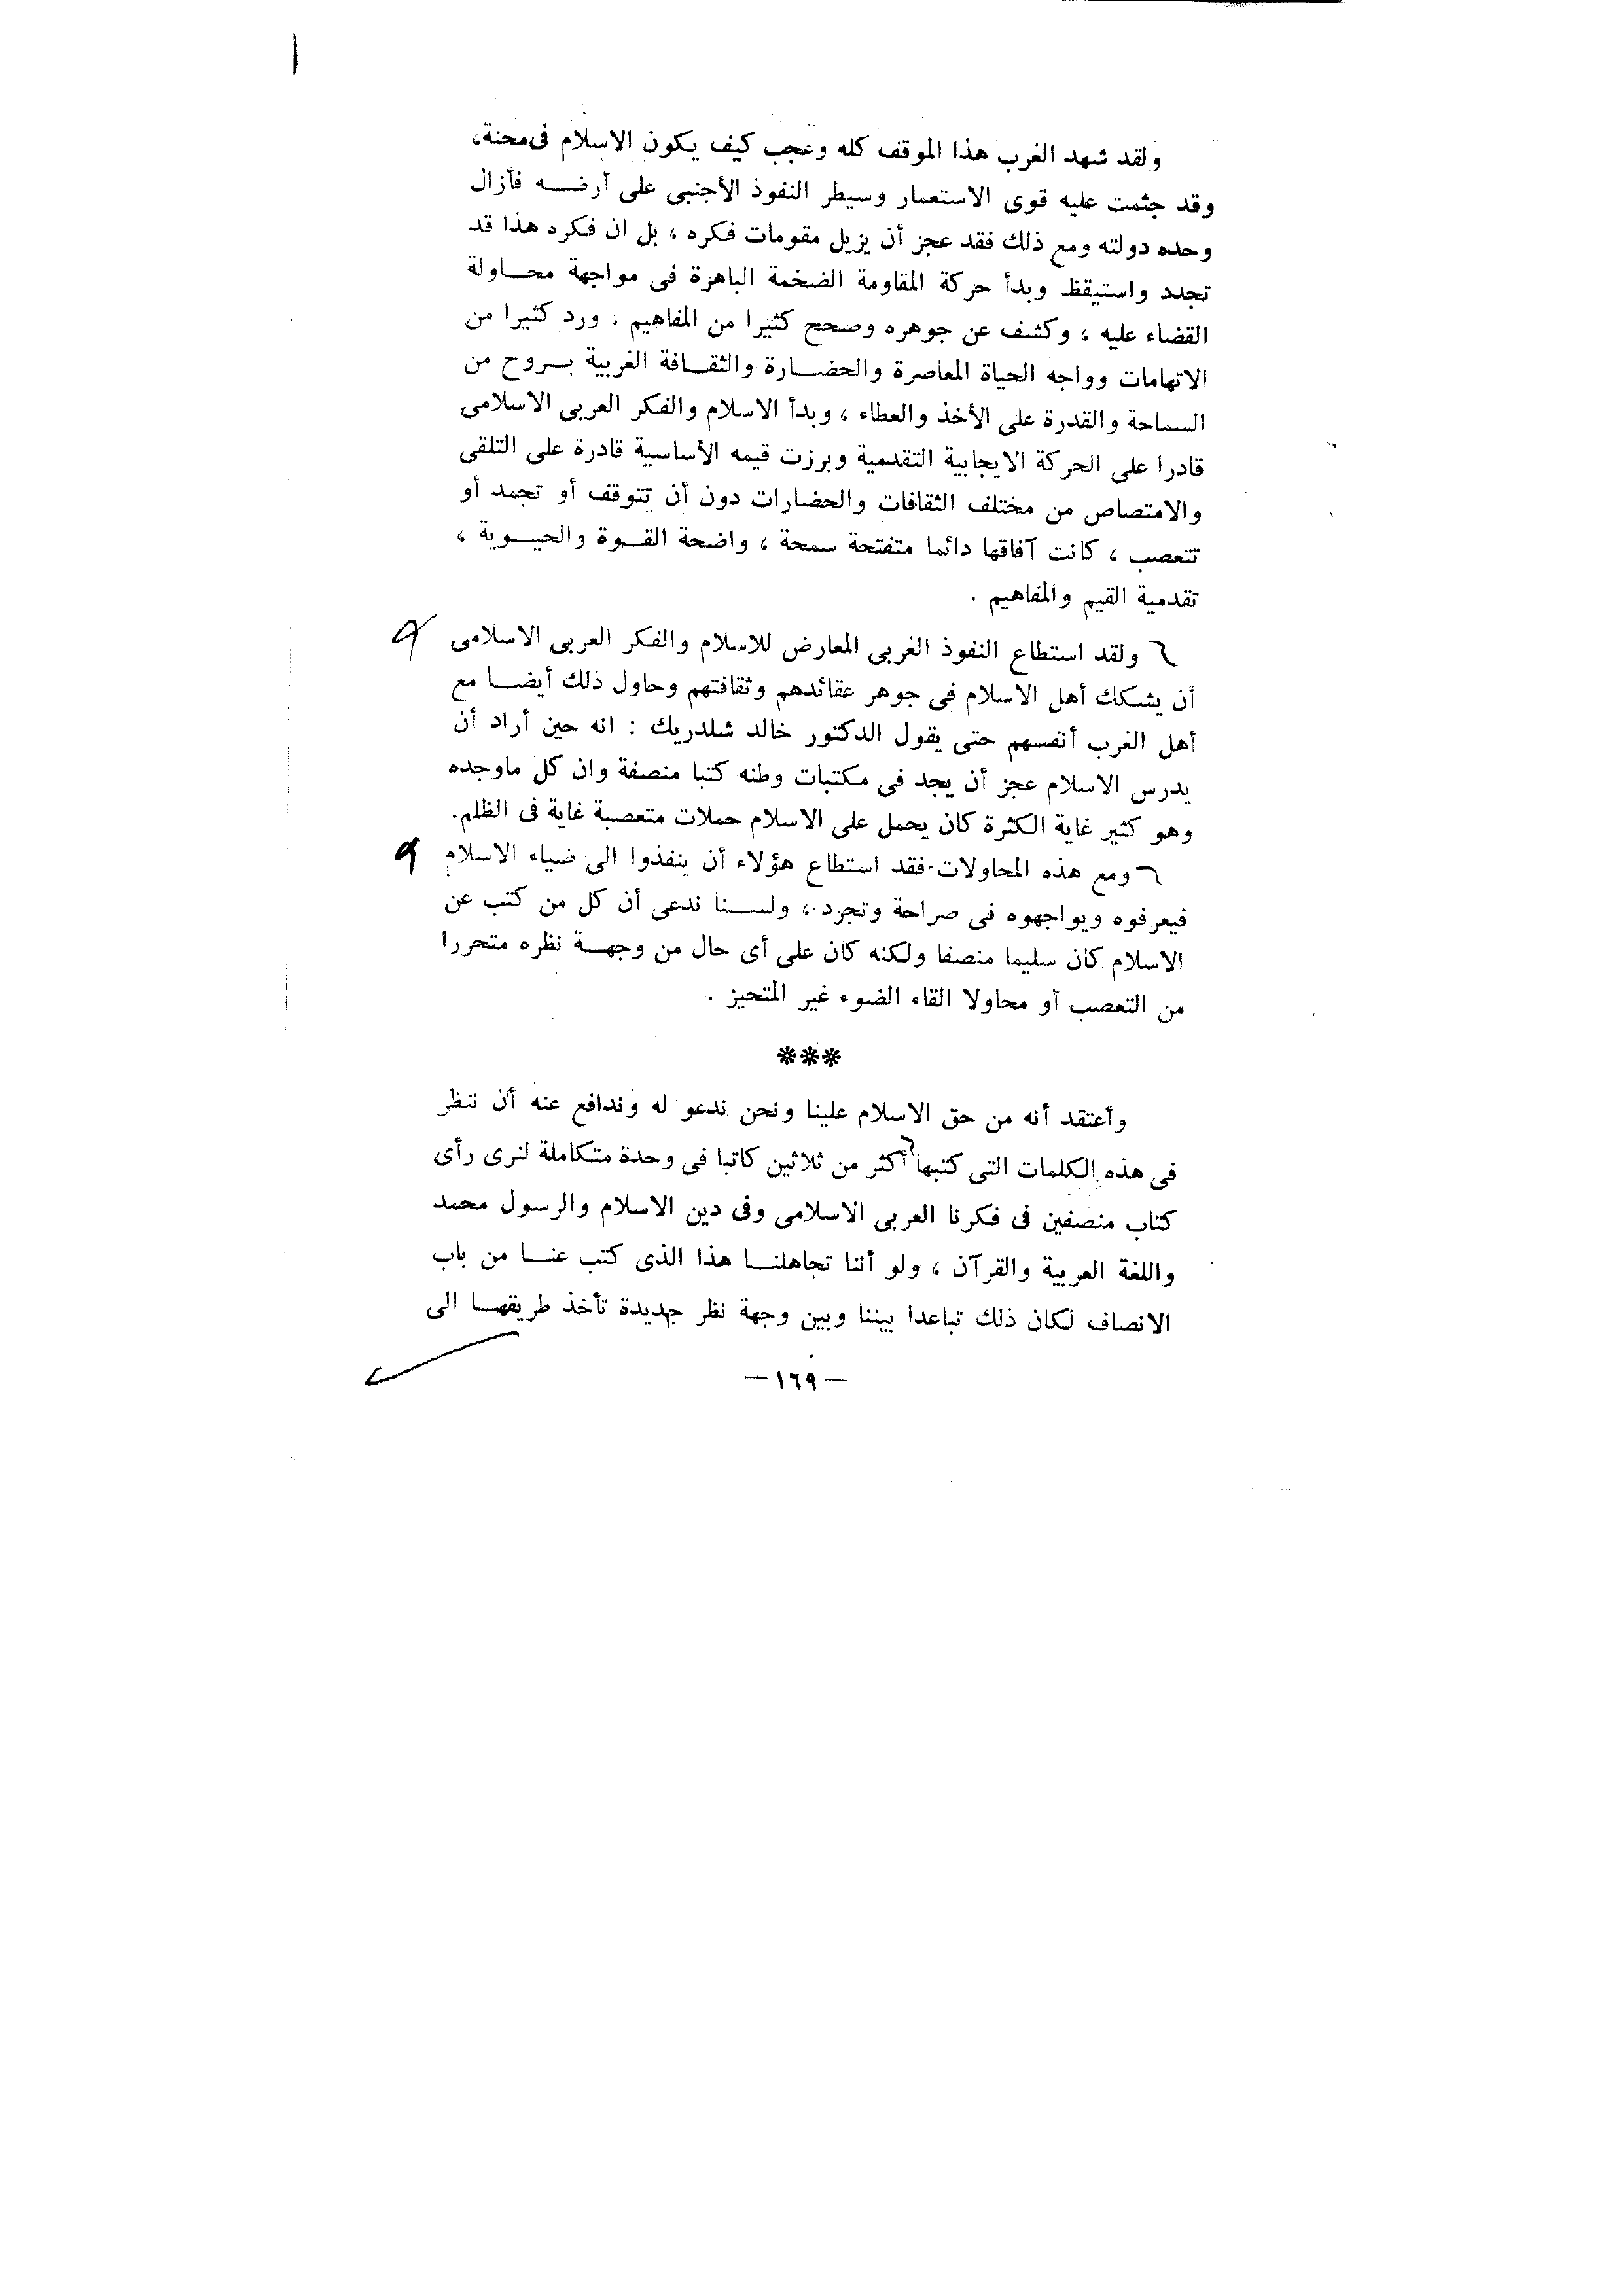 ولقد شهد الغرب هذا الموقف كله وعجب كيف يكون الاسلام فى محنة،
وقد جثمت عليه قوى الاستعمار وسيطر النفوذ الأجنبى على أرضه فأزال
وحده دولته ومع ذلك فقد عجز أن يزيل مقومات فكره ، بل ان فكره هذا قد
تجدد واستيقظ وبدأ حركة المقاومة الضخمة الباهرة فى مواجهة محاولة
القضاء عليه ، وكشف عن جوهره وصحح كثيرا من المفاهيم . ورد كثيرا من
الاتهامات وواجه الحياة المعاصرة والحضارة والثقافة الغربية بروح من
السماحة والقدرة على الأخذ والعطاء ، وبدأ الاسلام والفكر العربى الاسلامى
قادرا على الحركة الايجابية التقدمية وبرزت قيمه الأساسية قادرة على التلقى
والامتصاص من مختلف الثقافات والحضارات دون أن تتوقف أو تجمد أو
تتعصب ، كانت آفاقها دائما متفتحة سمحة ، واضحة القوة والحيوية ،
تقدمية القيم والمفاهيم .
ولقد استطاع النفوذ الغربى المعارض للاسلام والفكر العربى الاسلامى
أن يشكك أهل الاسلام فى جوهر عقائدهم وثقافتهم وحاول ذلك أيضا مع
أهل الغرب أنفسهم حتى يقول الدكتور خالد شلدريك : انه حين أراد أن
يدرس الاسلام عجز أن يجد فى مكتبات وطنه كتبا منصفة وان كل ماوجده
وهو كثير غاية الكثرة كان يحمل على الاسلام حملات متعصبة غاية فى الظلم.
ومع هذه المحاولات فقد استطاع هؤلاء أن ينفذوا الى ضياء الاسلام
فيعرفوه ويواجهوه فى صراحة وتجرد ، ولسنا ندعى أن كل من كتب عن
الاسلام كان سليما منصفا ولكنه كان على أى حال من وجهة نظره متحررا
من التعصب أو محاولا القاء الضوء غير المتحيز .
***
وأعتقد أنه من حق الاسلام علينا ونحن ندعو له وندافع عنه أن ننظر
فى هذه الكلمات التى كتبها أكثر من ثلاثين كاتبا فى وحدة متكاملة لنرى رأى
كتاب منصفين فى فكرنا العربى الاسلامى وفى دين الاسلام والرسول محمد
واللغة العربية والقرآن ، ولو أننا تجاهلنا هذا الذى كتب عنا من باب
الانصاف لكان ذلك تباعدا بيننا وبين وجهة نظر جديدة تأخذ طريقها الى
— ١٦٩ —